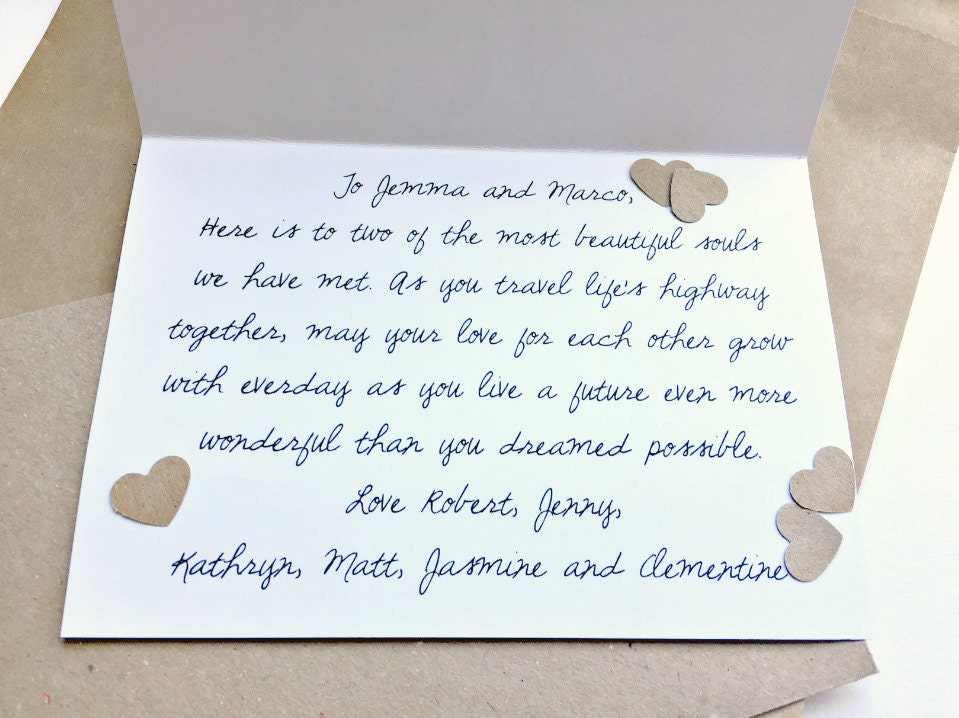 To Jemma and Marco,
Here is to two of the most beautiful souls
we have met. As you travel life's highway
together, may your love for each other grow
with everday as you live a future even more
wonderful than you dreamed possible.
Love Robert, Jenny,
Kathryn, Matt, Jasmine and Clementine